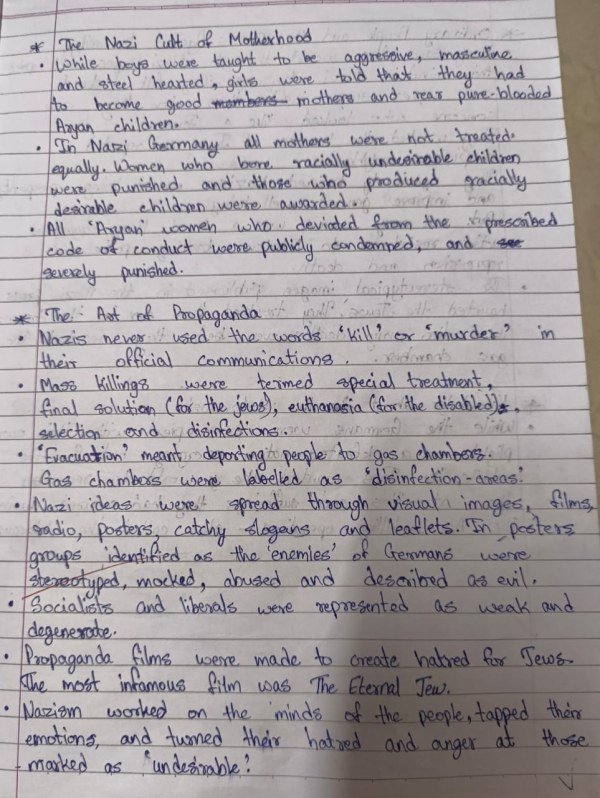 * The Nazi Cult of Motherhood
• While boys were taught to be aggressive, masculine
and steel hearted, girls were told that they had
to become good members mothers and rear pure-blooded
Aryan children.
• In Nazi Germany all mothers were not treated
equally. Women who bore racially undesirable children
were punished and those who produced racially
desirable children were awarded.
• All 'Aryan' women who deviated from the prescribed
code of conduct were publicly condemned, and see
severely punished.
* The Art of Propaganda
• Nazis never used the words 'kill' or 'murder' in
their official communications.
• Mass killings were termed special treatment,
final solution (for the jews), euthanasia (for the disabled),
selection and disinfections.
• 'Evacuation' meant deporting people to gas chambers.
Gas chambers were labelled as 'disinfection-areas'.
• Nazi ideas were spread through visual images, films,
radio, posters, catchy slogans and leaflets. In posters
groups identified as the 'enemies' of Germans were
stereotyped, mocked, abused and described as evil.
• Socialists and liberals were represented as weak and
degenerate.
• Propaganda films were made to create hatred for Jews.
The most infamous film was The Eternal Jew.
• Nazism worked on the minds of the people, tapped their
emotions, and turned their hatred and anger at those
marked as 'undesirable'.